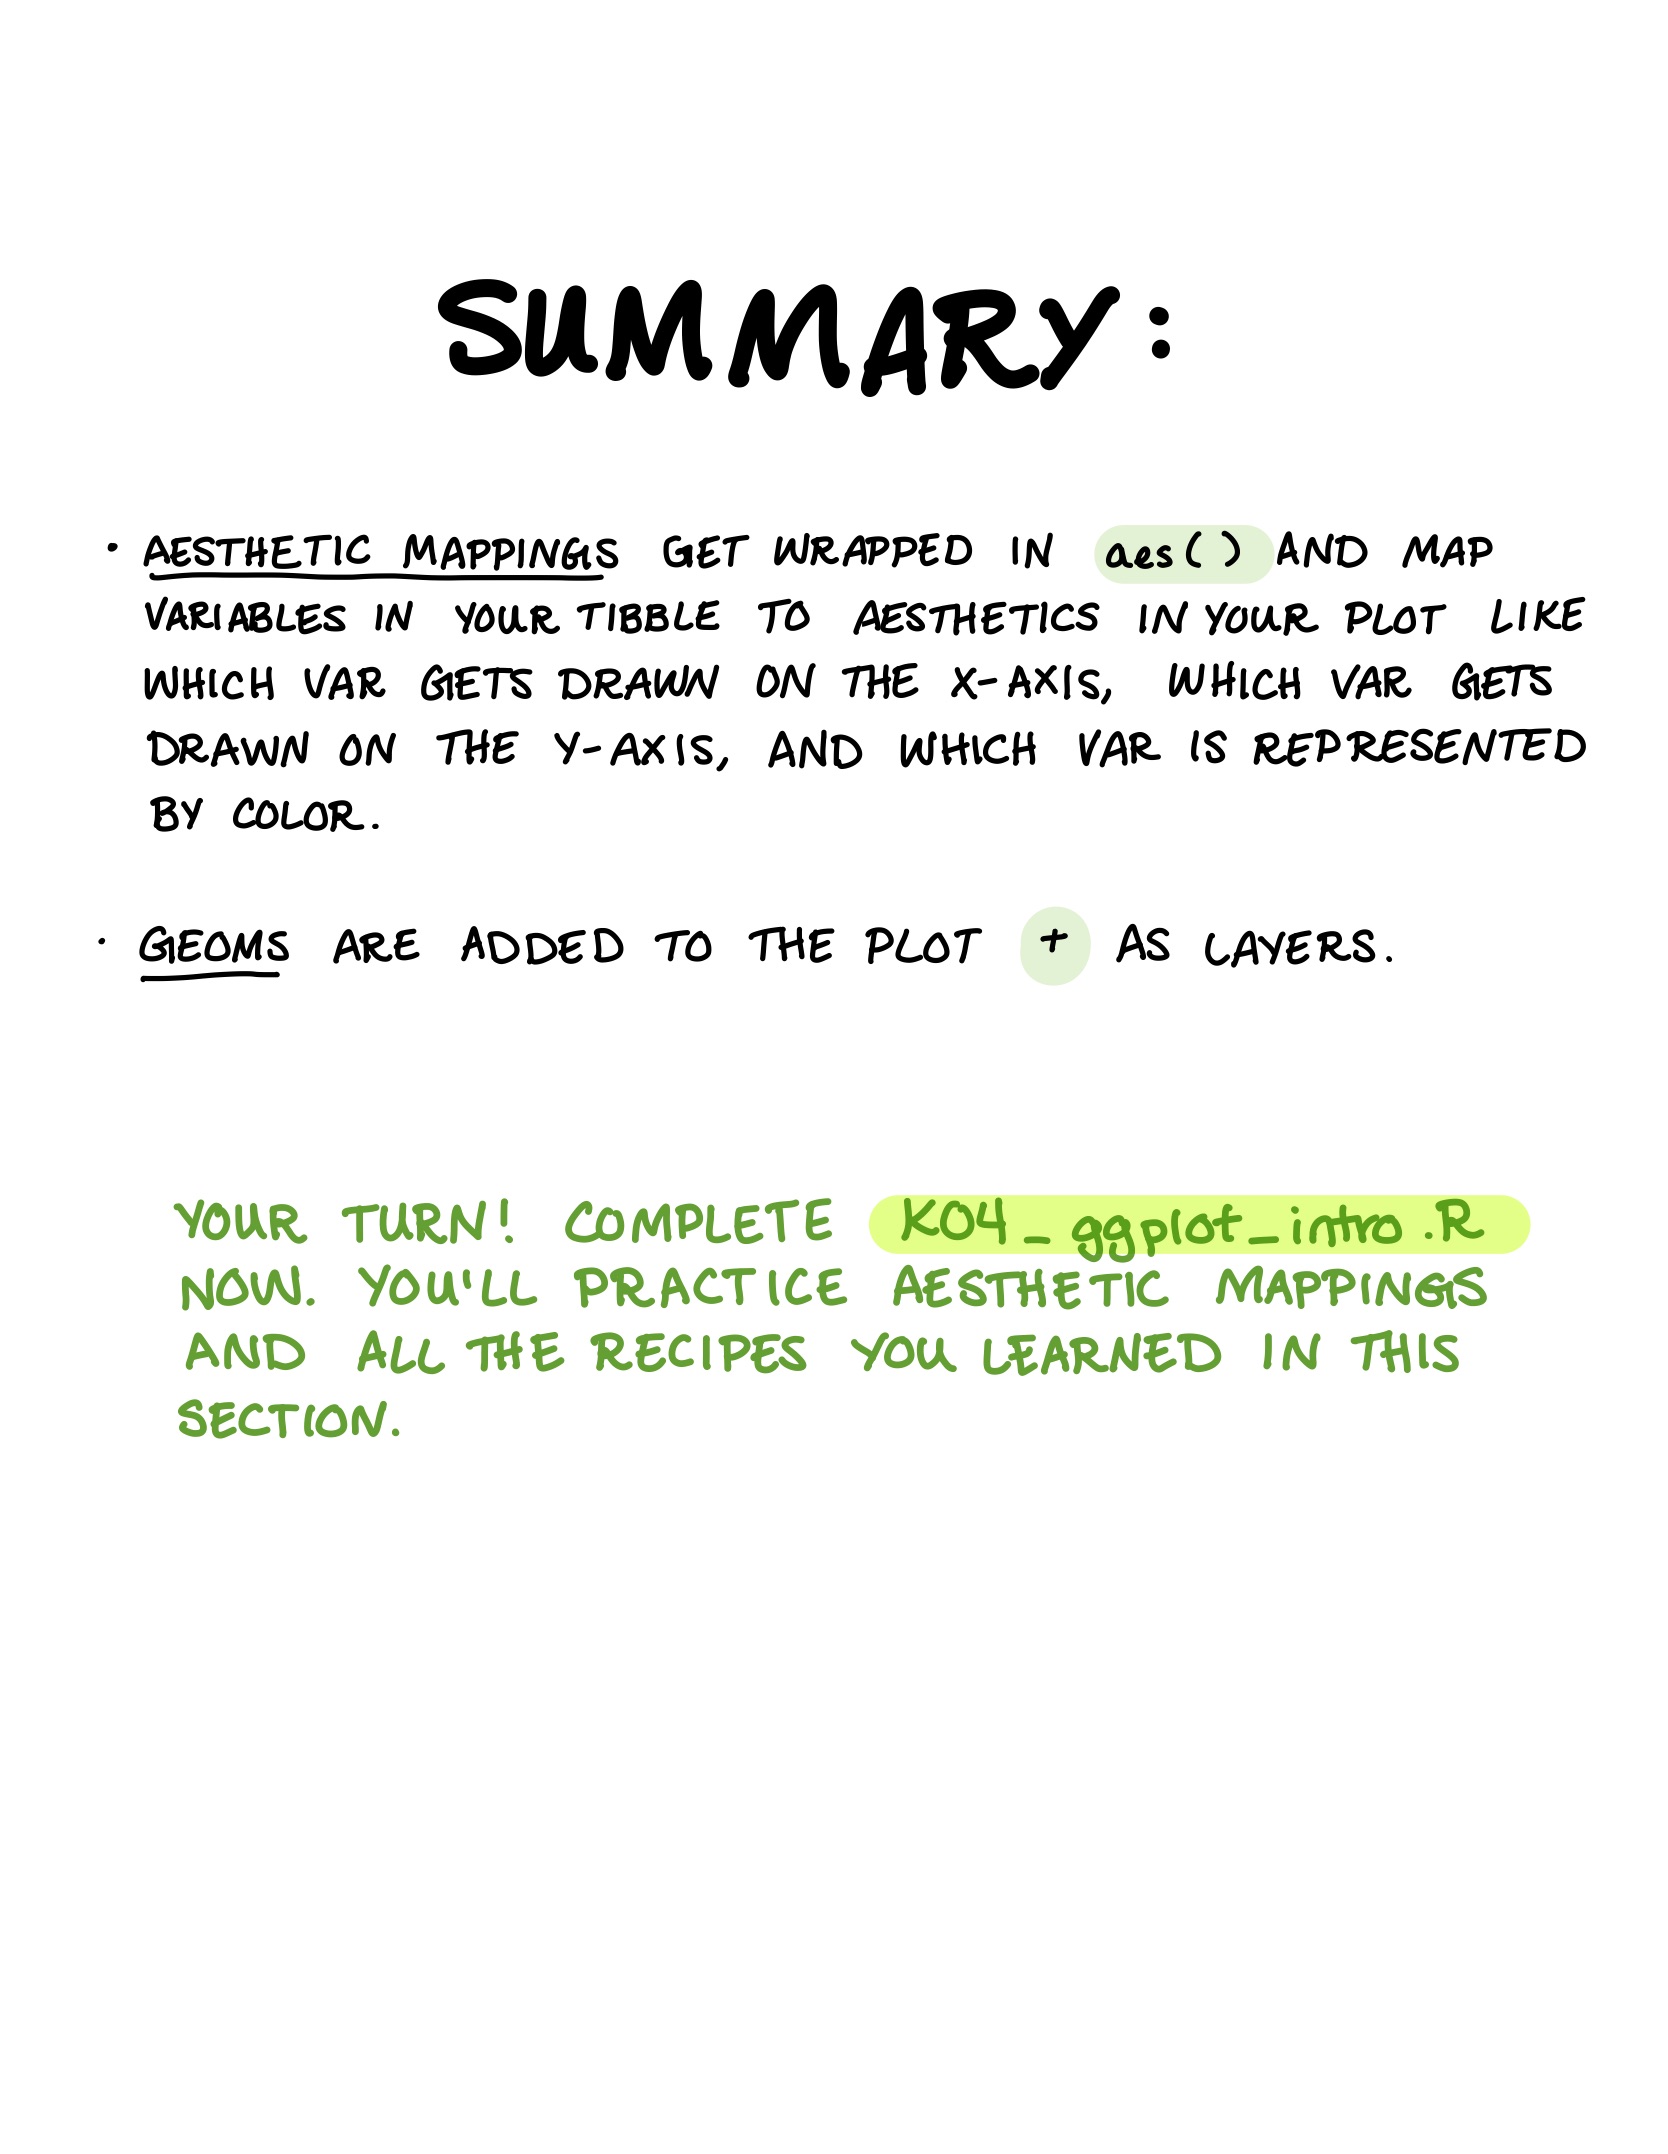 SUMMARY:
· AESTHETIC MAPPINGS GET WRAPPED IN aes() AND MAP
VARIABLES IN YOUR TIBBLE TO AESTHETICS IN YOUR PLOT LIKE
WHICH VAR GETS DRAWN ON THE X-AXIS, WHICH VAR GETS
DRAWN ON THE Y-AXIS, AND WHICH VAR IS REPRESENTED
BY COLOR.
· GEOMS ARE ADDED TO THE PLOT + AS LAYERS.
YOUR TURN! COMPLETE K04_ggplot_intro.R
NOW. YOU'LL PRACTICE AESTHETIC MAPPINGS
AND ALL THE RECIPES YOU LEARNED IN THIS
SECTION.